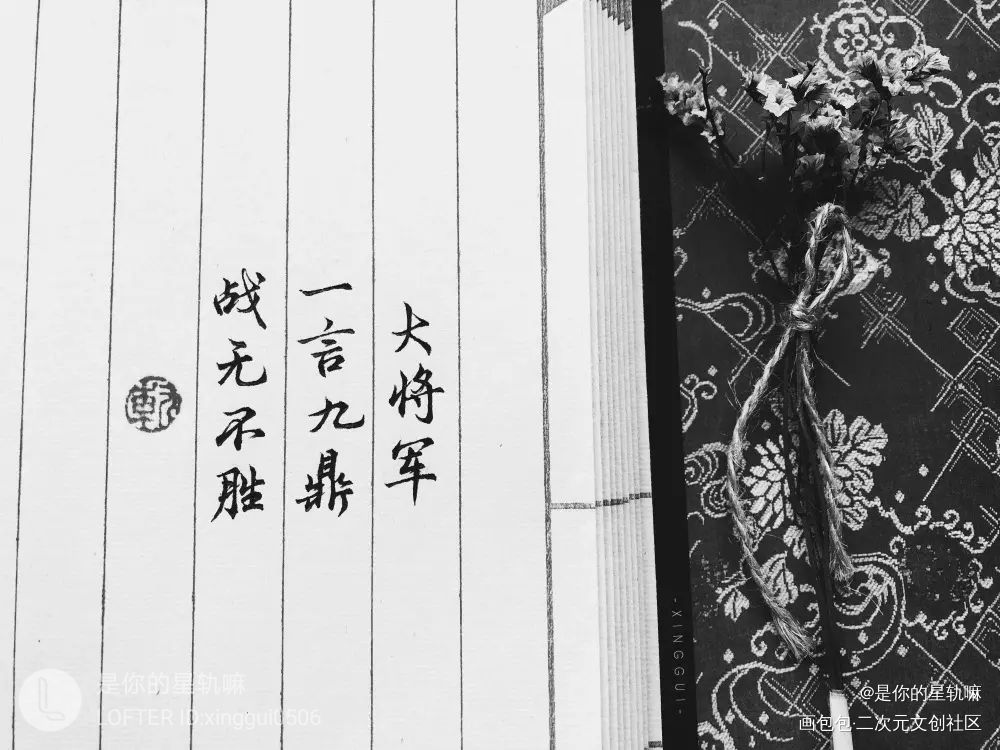 大将军
一言九鼎
战无不胜
軌
-XINGGUI-
是你的星轨嘛
LOFTER ID:xinggui0506
@是你的星轨嘛
画包包·二次元文创社区